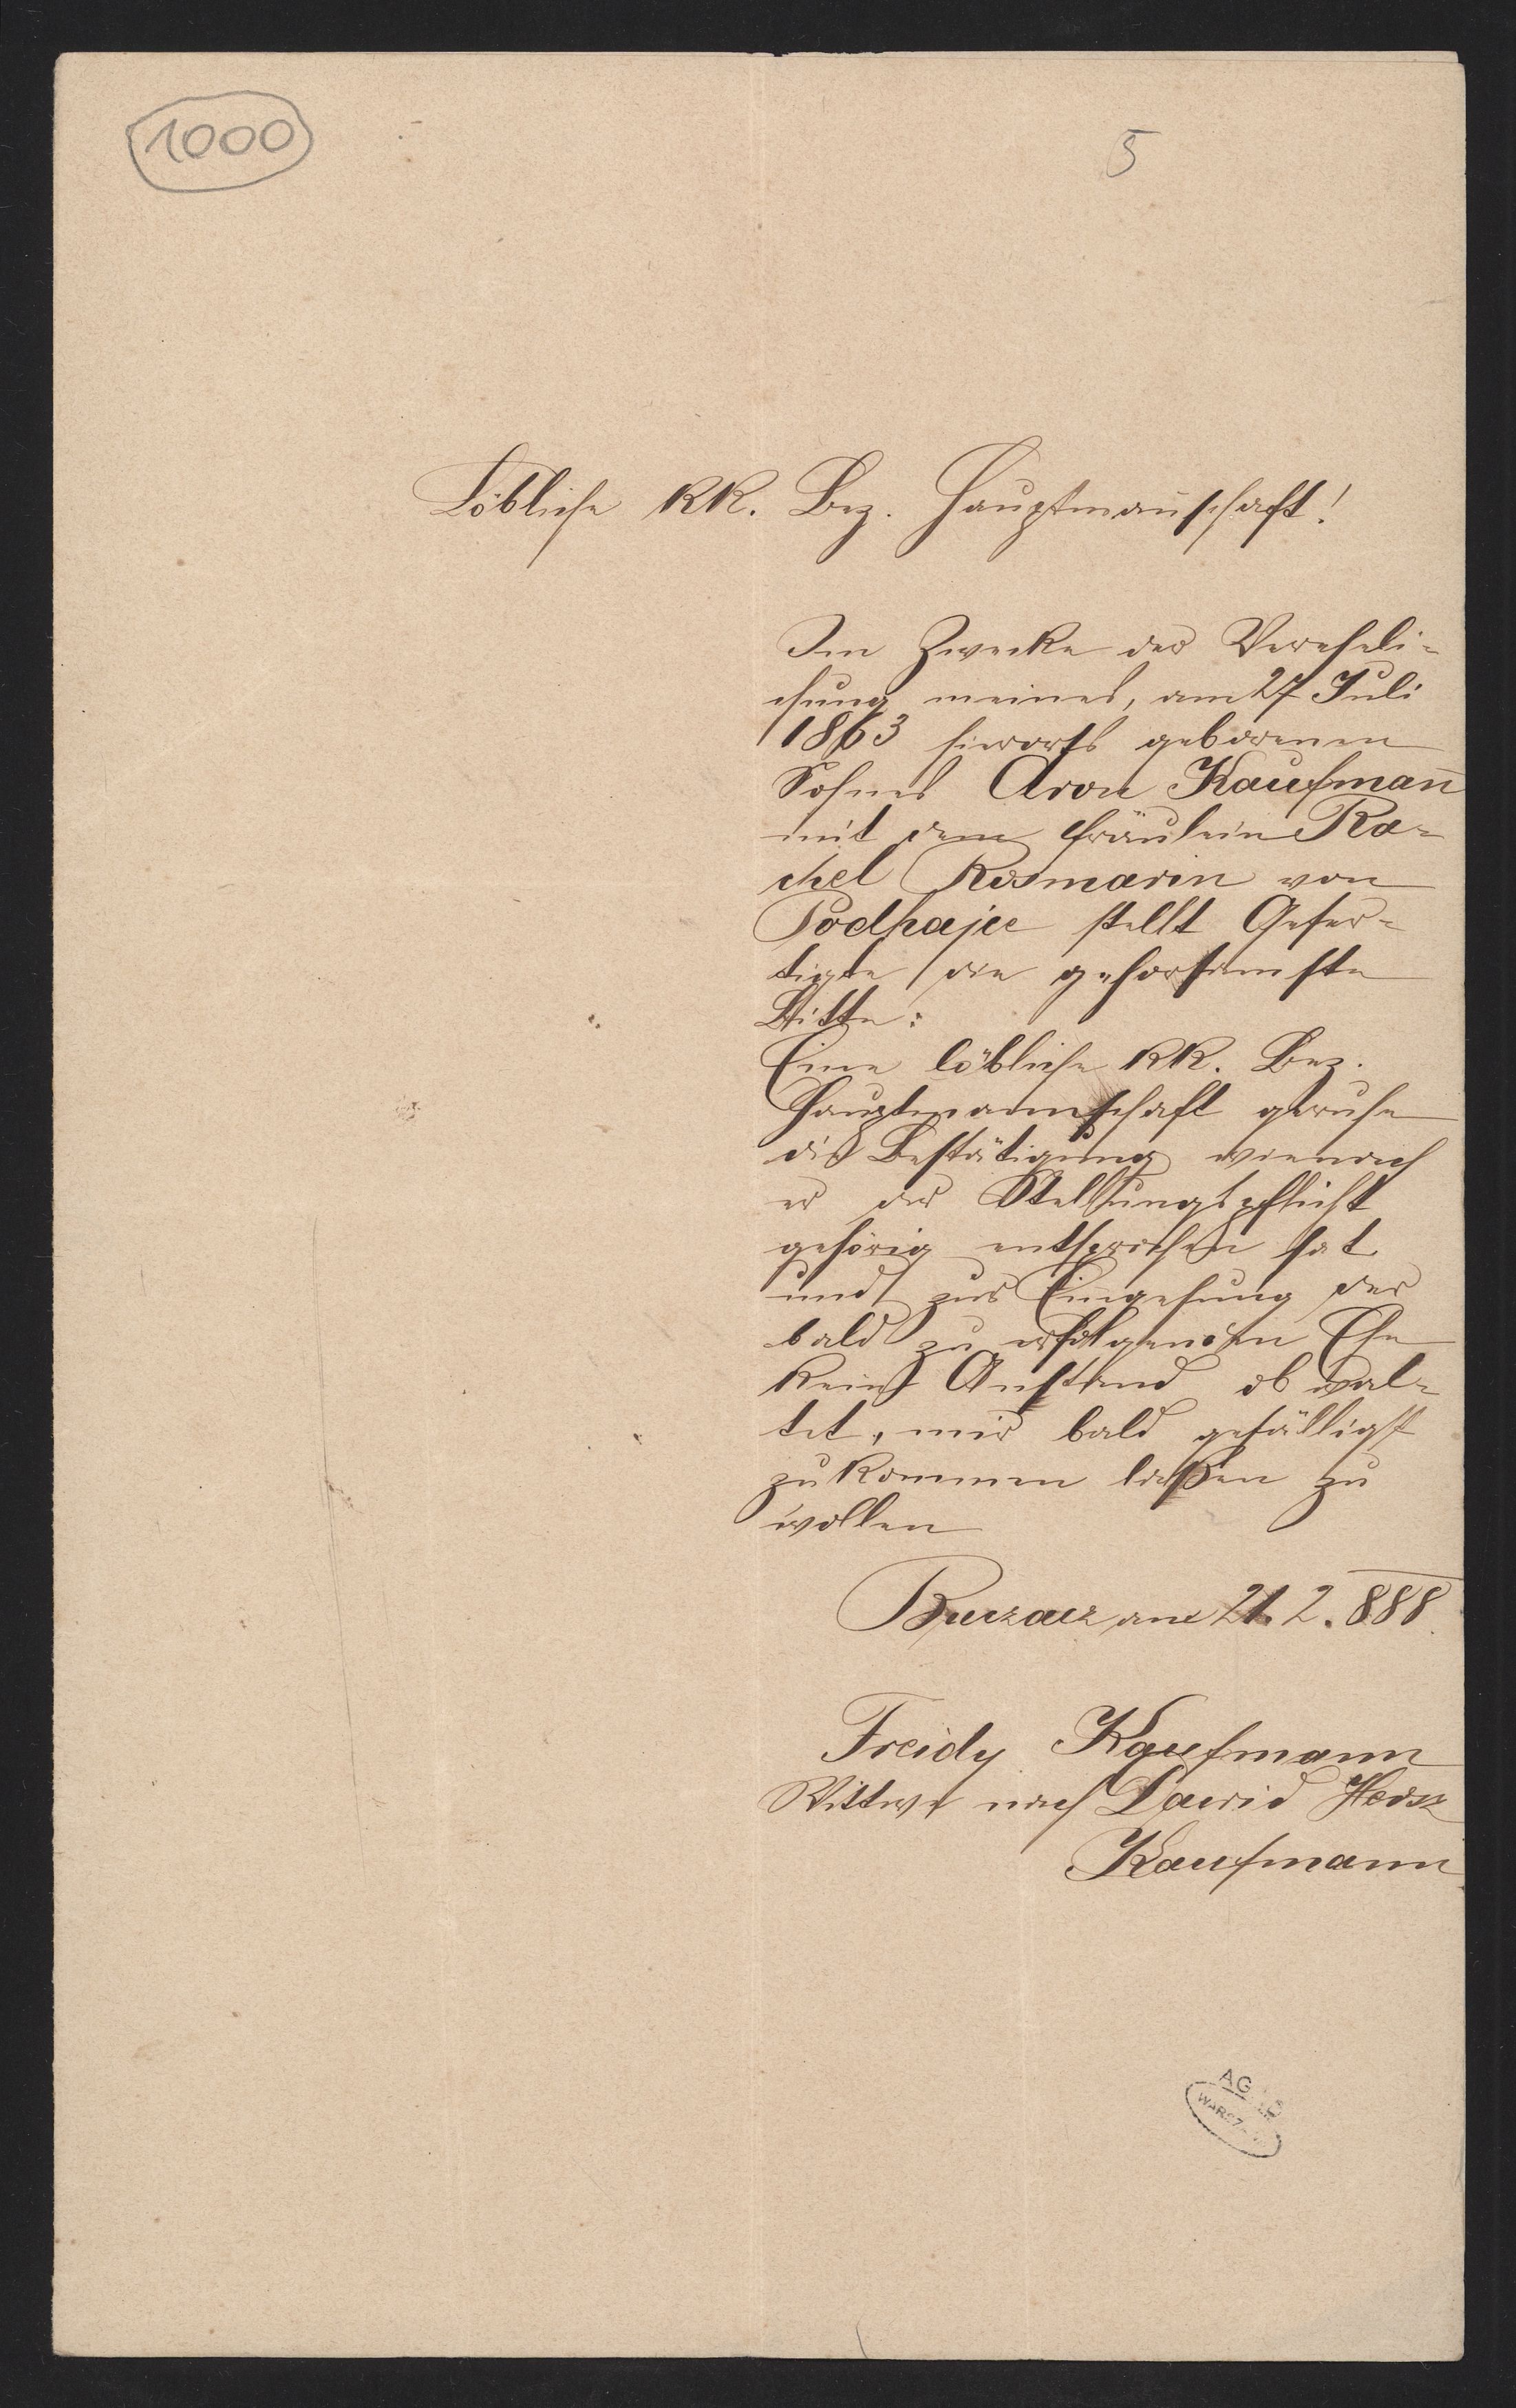 1000
5
Löbliche KK. Bez. Hauptman̄schaft!
Im Zwecke der Vereheli=
chung meines, am 27 Juli
1863 hierorts geborenen
Sohnes Aron Kaufman̄
mit dem Fräulein Ra=
chel Rosmarin von
Podhajce stellt Gefer=
tigte die gehorsamste
Bitte:
Eine löbliche KK. Bez.
Hauptmannschaft geruhe
die Bestätigung wienach
er der Stellungspflicht
gehörig entsprochen hat
und zur Eingehung der
bald zu erfolgenden Ehe
kein Anstand ob wal=
tet, mir bald gefälligst
zukommen laßen zu
wollen
Buczacz am 21. 2. 888.
Freidy Kaufmann
Wittwe nach Dawid Hersz
Kaufmann
AG
WARSZ